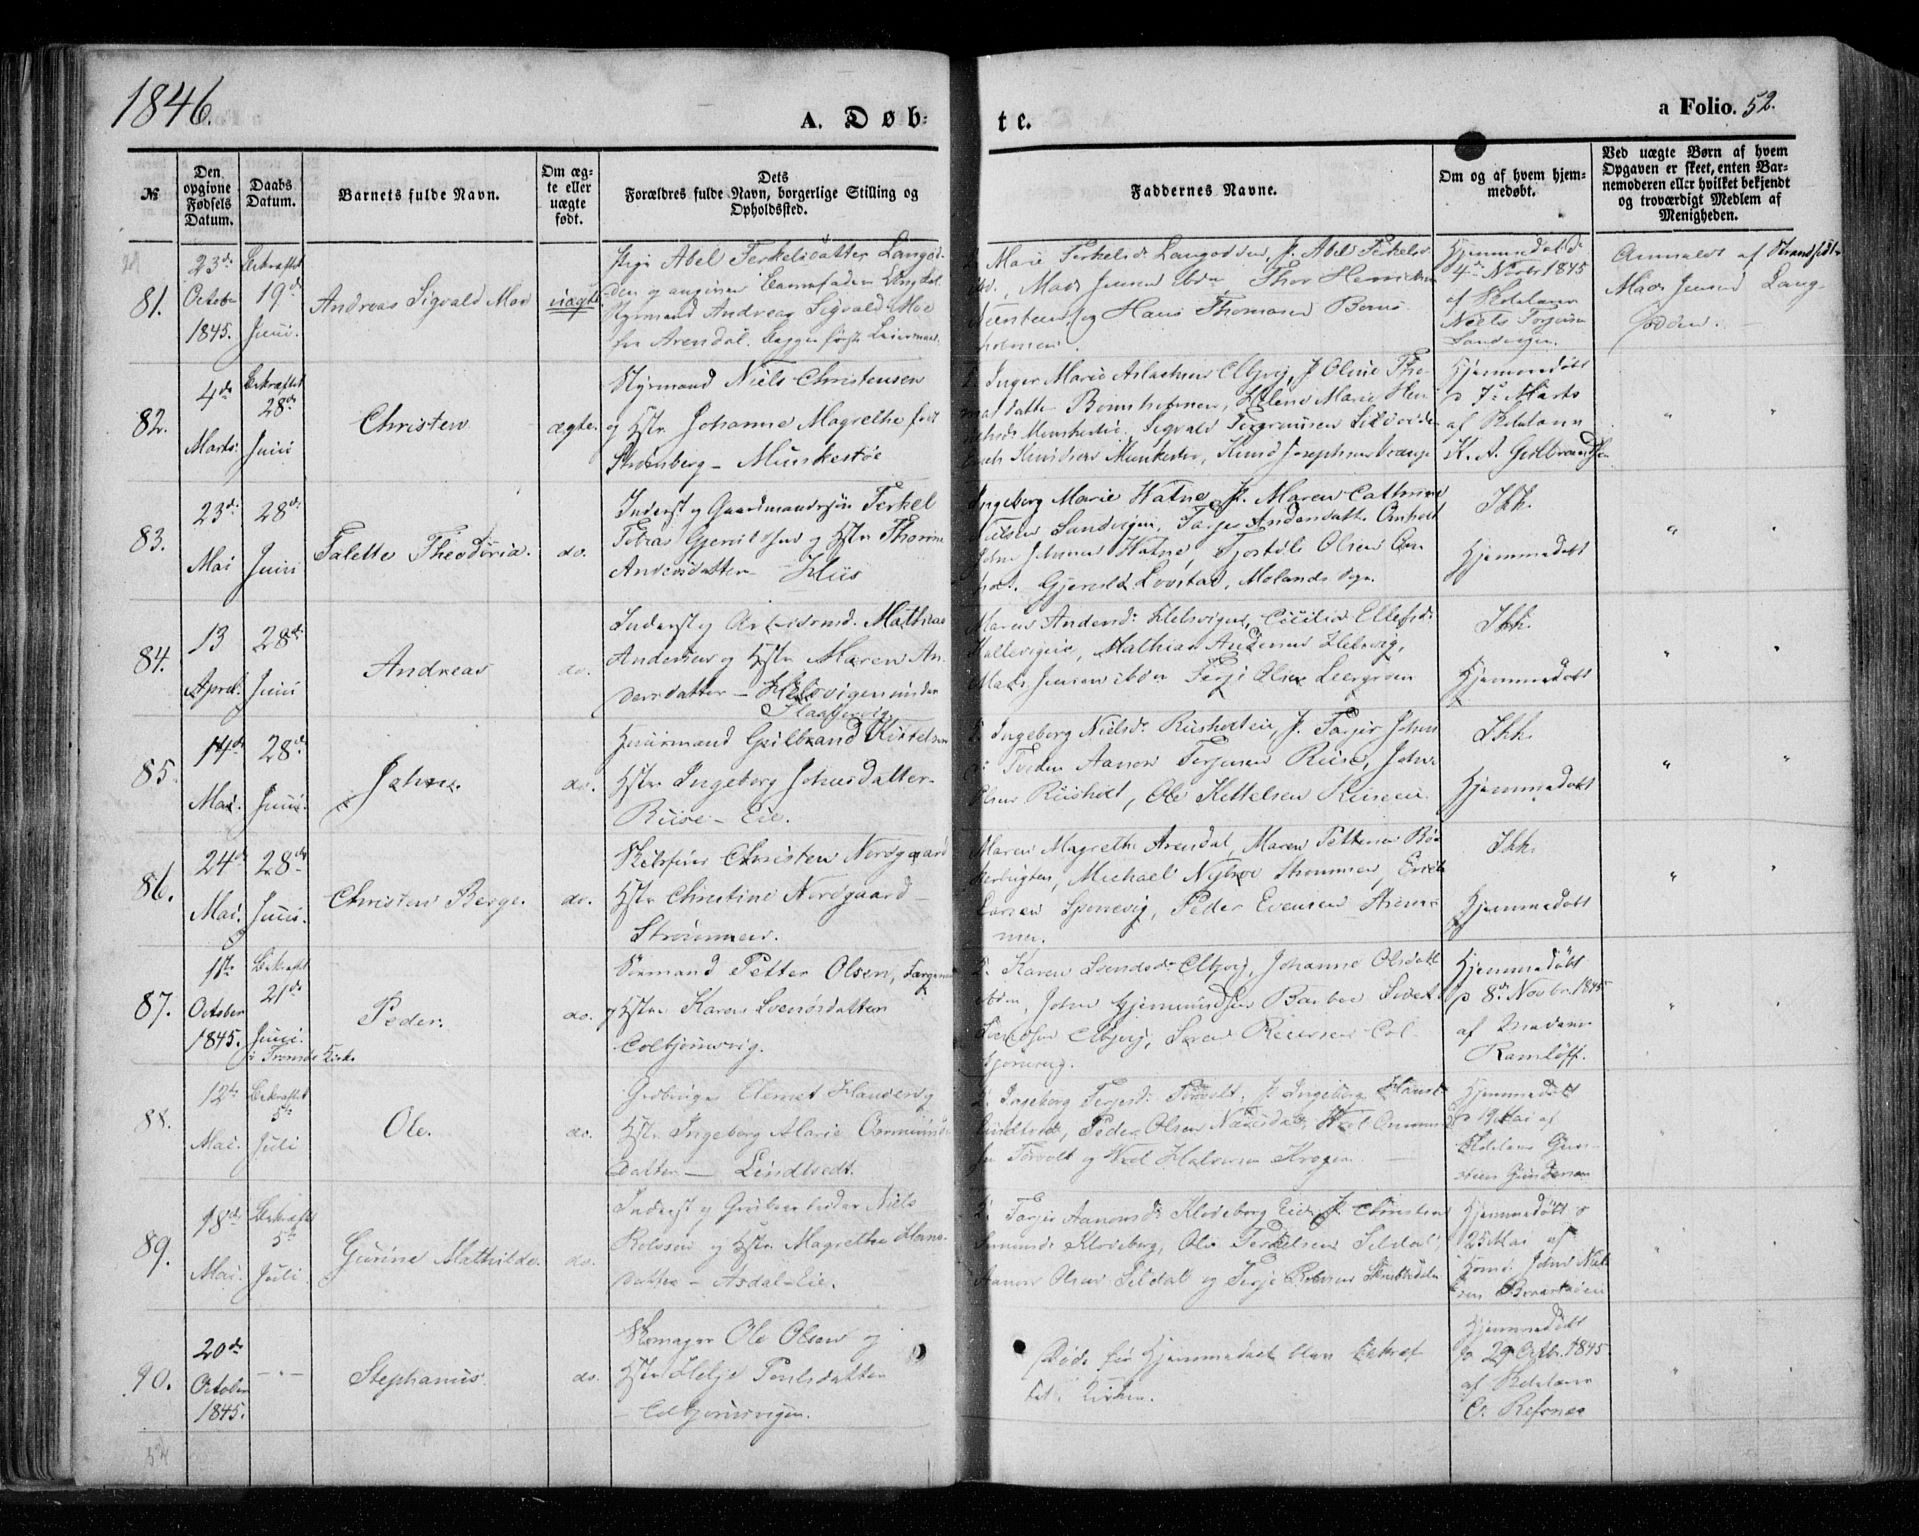 1846.
A. Døb-
te.
a Folio. 52.
№
Den opgivne Fødsels Datum.
Daabs Datum.
Barnets fulde Navn.
Om ægte eller uægte født.
Dets Forældres fulde Navn, borgerlige Stilling og Opholdssted.
Faddernes Navne.
Om og af hvem hjemmedøbt.
Ved uægte Børn af hvem Opgaven er skeet, enten Barnemoderen eller hvilket bekjendt og troværdigt Medlem af Menigheden.
81.
23de October 1845.
Bekræftet 19de Juni.
Andreas Sigvald Moe
uægte
Pige Abel Terkelsdatter Langød-
den og angiven Barnefader Ungkarl
Styrmand Andreas Sigvald Moe
fra Arendal. Begges første Leiermaal.
Marie Terkelsd. Langodden, J. Abel Terkels
Mads Jensen ibdn, Thor Henriksen
og Hans Thomasen Borns-
holmen.
Hjemmedøbt
4de Novbr 1845
af
Niels Terjesen
Sandvigen.
Anmeldt af
Mads Jensen Lang-
odden.
82.
4de Marts
Bekræftet 28de Juni
Christen
ægte.
Styrmand Niels Christensen
og Hstr Johanne Magrethe født
Strømberg - Munkestøe
Inger Marie Aslachsen Elbjvj, J. Oline Tho-
masdatter Bornsholmen, Helene Marie Hen-
Munkestøe, Sigvald
Knudsen Munkestøe, Knud Josephsen
Hjemmedøbt
d 7de Marts
af
K. A. Gulbrandsen
83.
23de Mai
28de Juni
Talette Theodoria.
do.
Inderst og Gaardmandssøn Terkel
Tobias Gjeruldsen og Hstr Thorine
Andersdatter - Hiis
Ingeborg Marie Hatne, J. Maren Cathrine
Nielsen Sandvigen, Tarjer Andersdatter Omholt
John Johnsen Hatne, Tjostolv Olsen Om-
holt. Gjeruld Lovstad, Molands Sogn.
Ikk.
Hjemmedøbt
84.
13 April.
28de Juni
Andreas
do.
Inderst og Arbeidsmd. Mathias
Andersen og Hstr Maren An-
dersdatter - Helsvigen under
Flaatervig
Maren Andersd. Helsvigen, Cecilie Ellefsd.
Hallevigen, Mathias Andersen Helsvig,
Mads Jensen ibdn Terje Olsen Leergroven
Ikk.
Hjemmedøbt
85.
14de Mai.
28de Juni.
John.
do.
Huusmand Gulbrand Kittelsen
Hstr Ingeborg Johnsdatter
Riise - Eie.
Ingeborg Nielsd. Riisholten, J. Tarjer Johns
Aanon Terjesen Riise, John
Olsen Riisholt, Ole Kittelsen Riiseeie
Ikk.
Hjemmedøbt
86.
24de Mai.
28de Juni.
Christen Berge.
do.
Skibsfører Christen Nordgaard
Hstr Christine Nordgaard -
Strømmen.
Maren Magrethe Arendal, Maren Pettersen Bød-
kerbugten, Michael Nyhoe Strømmen, Erich
Larsen Sponevig, Peder Evensen Strøm-
men.
Ikk.
Hjemmedøbt
87.
11te October 1845.
Bekræftet 21de Juni.
i Tromø Kirke
Peder.
do.
Sømand Petter Olsen,
og Hstr Karen Svendsdatter
Colbjørnsvig.
Karen Svendsd. Elbjvj, Johanne Olsdatter
ibdn, John Gjermundsen Barboe Sivert
Svendsen Elbjvj, Søren Reiersen Col-
bjørnsvig.
Hjemmedøbt
d 8de Novbr. 1845
af Madam
Ramløff.
88.
12te Mai.
Bekræftet 5te Juli
Ole.
do.
Grubeeier Clemet Hansen og
Hstr Ingeborg Marie Osmunds-
datter - Lindtvedt.
Ingeborg Terjesd. Torvolt, J. Ingeborg Hansd.
Lindtvedt, Peder Olsen Næsdal,
Torvolt og Halvorsen Krogen
Hjemmedøbt
d 19 Mai af
Gundersen
89.
18de Mai.
Bekræftet 5te Juli
Gurine Mathilde.
do.
Inderst og Grubearbeider Niels
Rolvsen og Hstr Magrethe Hans-
datter - Asdal-Eie.
Tarjer Aanonsd. Klodeborg Eie, J. Christen
Klodeborg, Ole Terkelsen Seldal,
Aanon Olsen Seldal og Terje
Hjemmedøbt d
25 Mai af
John Niel-
sen
90.
20de October 1845.
-"-
Stephanus.
do.
Skomager Ole Olsen og
Hstr Helje Poulsdatter
- Colbjørnsvigen.
Døde før Hjemmedaab blev bekræf-
tet i Kirken.
Hjemmedøbt
d 29 Octbr. 1845
af
C. Refsnæs